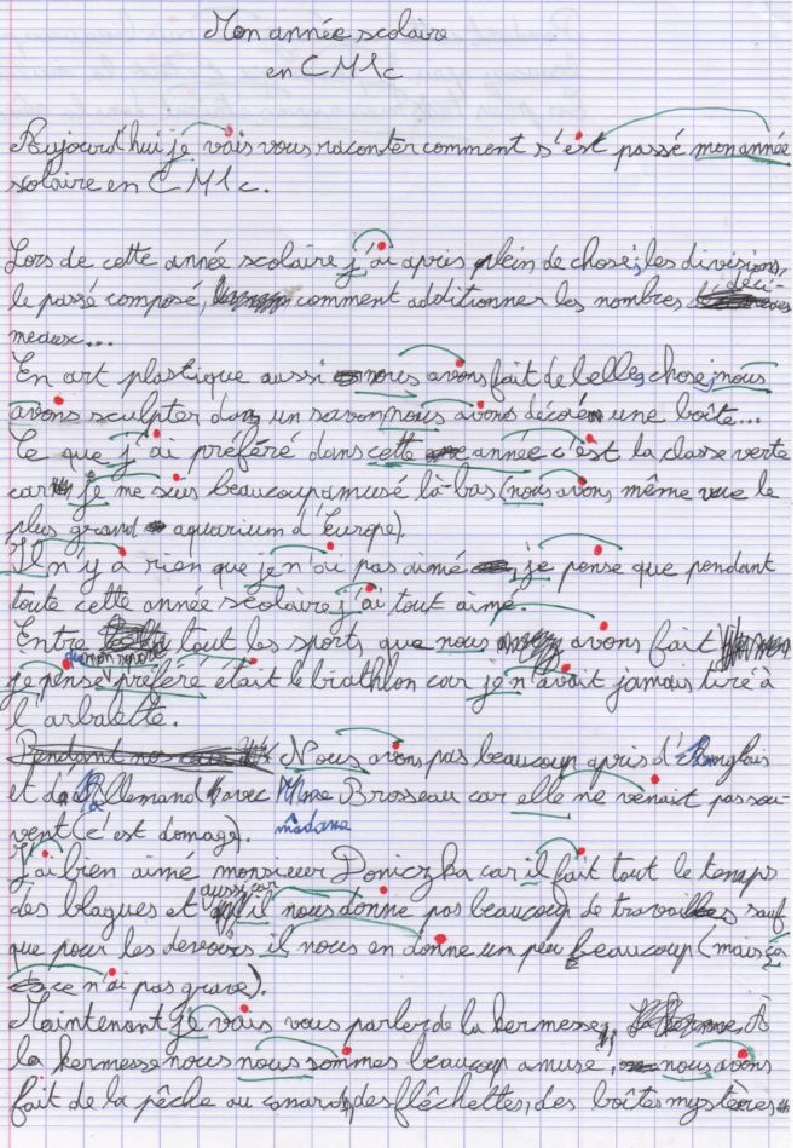 Mon année scolaire
en CM1c
Aujourd'hui je vais vous raconter comment s'est passé mon année
scolaire en CM1c.
Lors de cette année scolaire j'ai apris plein de chose; les divisions,
le passé composé, comment additionner les nombres déci-
meaux...
En art plastique aussi nous avons fait de belles chose; nous
avons sculpter dans un savon nous avons décoré une boîte...
Ce que j'ai préféré dans cette année c'est la classe verte
car je me suis beaucoup amusé là-bas (nous avons même vue le
plus grand aquarium d'Europe).
Il n'y a rien que je n'ai pas aimé, je pense que pendant
toute cette année scolaire j'ai tout aimé.
Entre tout les sports que nous avons fait
je pense que mon sport préféré était le biathlon car je n'avait jamais tiré à
l'arbalette.
Nous avons pas beaucoup apris d'Anglais
et d'Allemand avec Mme Brosseau car elle ne venait pas sou-
vent (c'est domage). madame
J'ai bien aimé monsieur Doniczka car il fait tout le temps
des blagues et aussi car il nous donne pas beaucoup de travail sauf
que pour les devoirs il nous en donne un peu beaucoup (mais ça
ce n'ai pas grave).
Maintenant je vais vous parler de la kermesse, À
la kermesse nous nous sommes beaucoup amuse, nous avons
fait de la pêche au canards, des flêchettes, des boîtes mystères